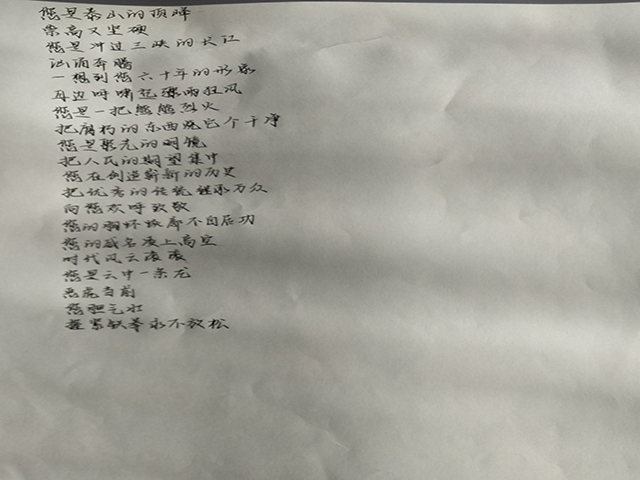 您是泰山的顶峰
崇高又坚硬
您是冲过三峡的长江
汹涌奔腾
一想到您六十年的形象
耳边呼啸起骤雨狂风
您是一把熊熊烈火
把腐朽的东西烧它个干净
您是聚光的明镜
把人民的期望集中
您在创造崭新的历史
把优秀的传统继承万众
向您欢呼致敬
您的 都不自居功
您的威名凌上高空
时代风云滚滚
您是云中一条龙
恶虎当前
您胆气壮
握紧铁拳永不放松